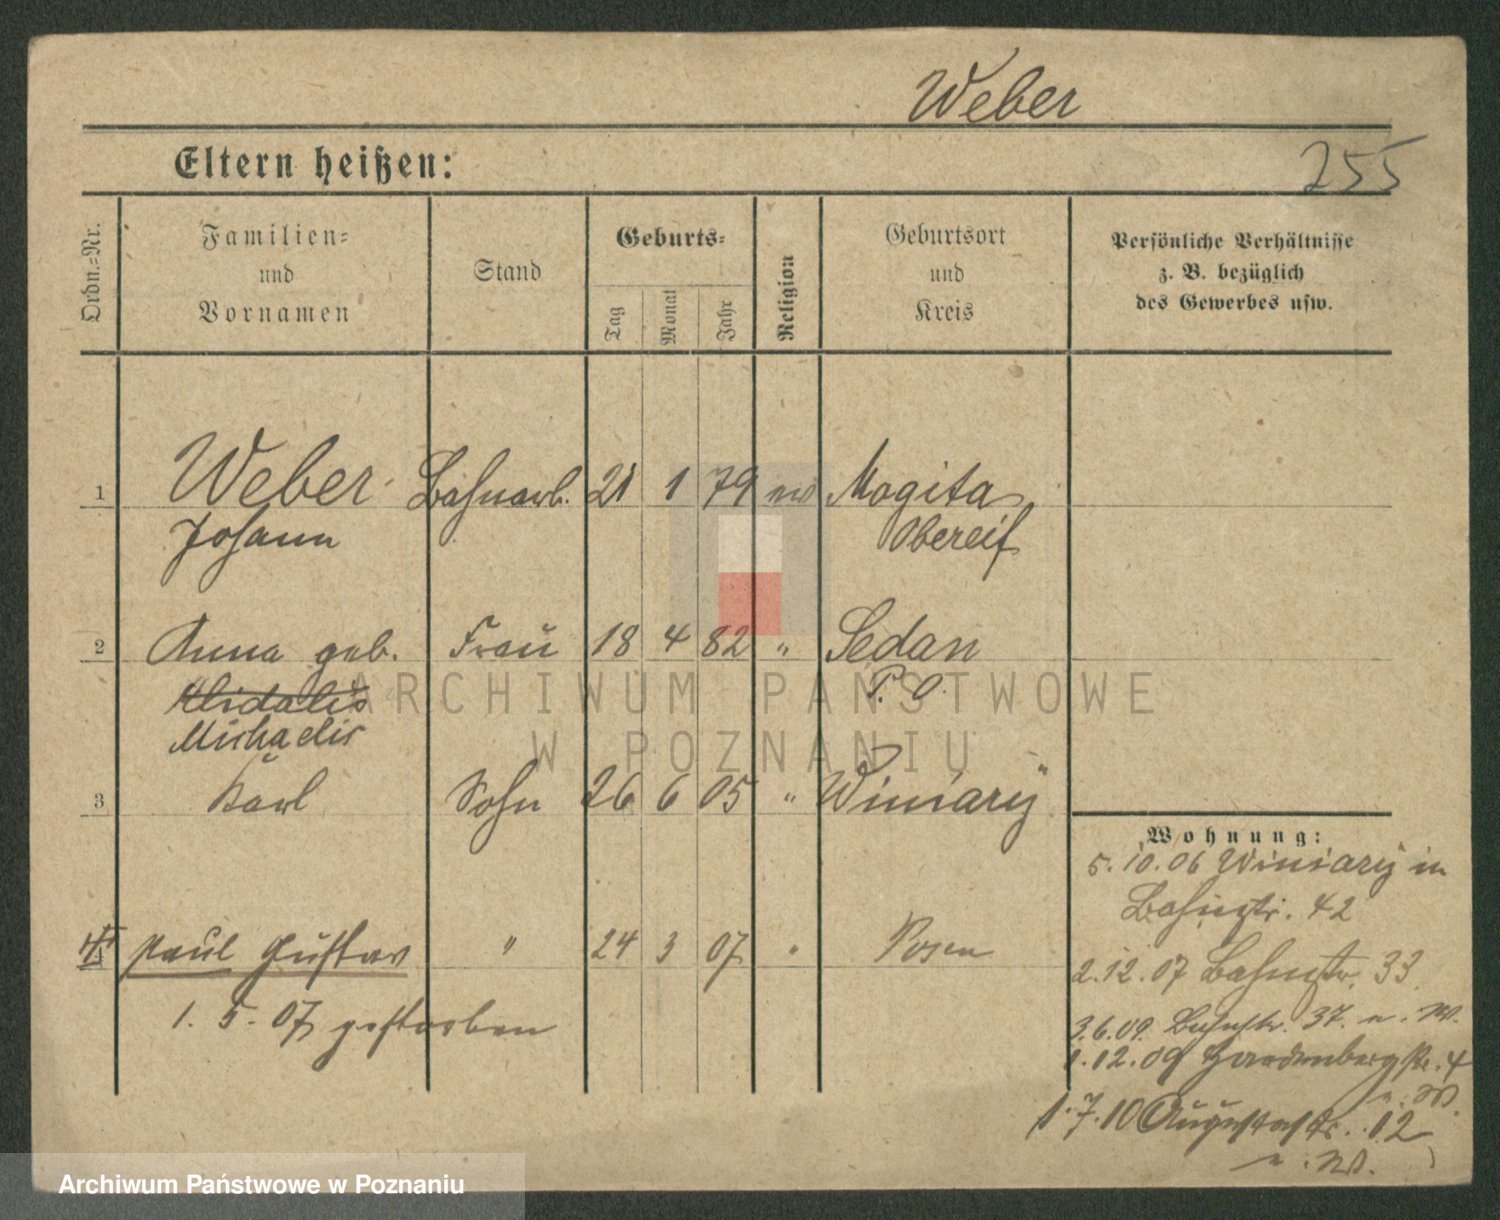 Weber
Eltern heißen:
255
Ordn.-Nr.
Familien-
und
Vornamen
Stand
Geburts-
Tag
Monat
Jahr
Religion
Geburtsort
und
Kreis
Persönliche Verhältnisse
z. B. bezüglich
des Gewerbes usw.
1 Weber Bahnarb. 21 1 79 Mogita
Johann
2 Anna geb. Frau 18 4 82 " Sedan
P. O.
Michaelis
3 Karl Sohn 26 6 05 " Winiary
Wohnung:
5.10.06 Winiary in
Bahnstr. 42
4 Paul Gustav " 24 3 07 " Posen
2.12.07 Bahnstr. 33
1. 5. 07 gestorben
3.6.09. Bahnstr. 37. n. W.
1.12.09 Hardenbergstr. 4
n. W.
1.7.10 Augustastr. 12
n. W.
ARCHIWUM PAŃSTWOWE
W POZNANIU
Archiwum Państwowe w Poznaniu